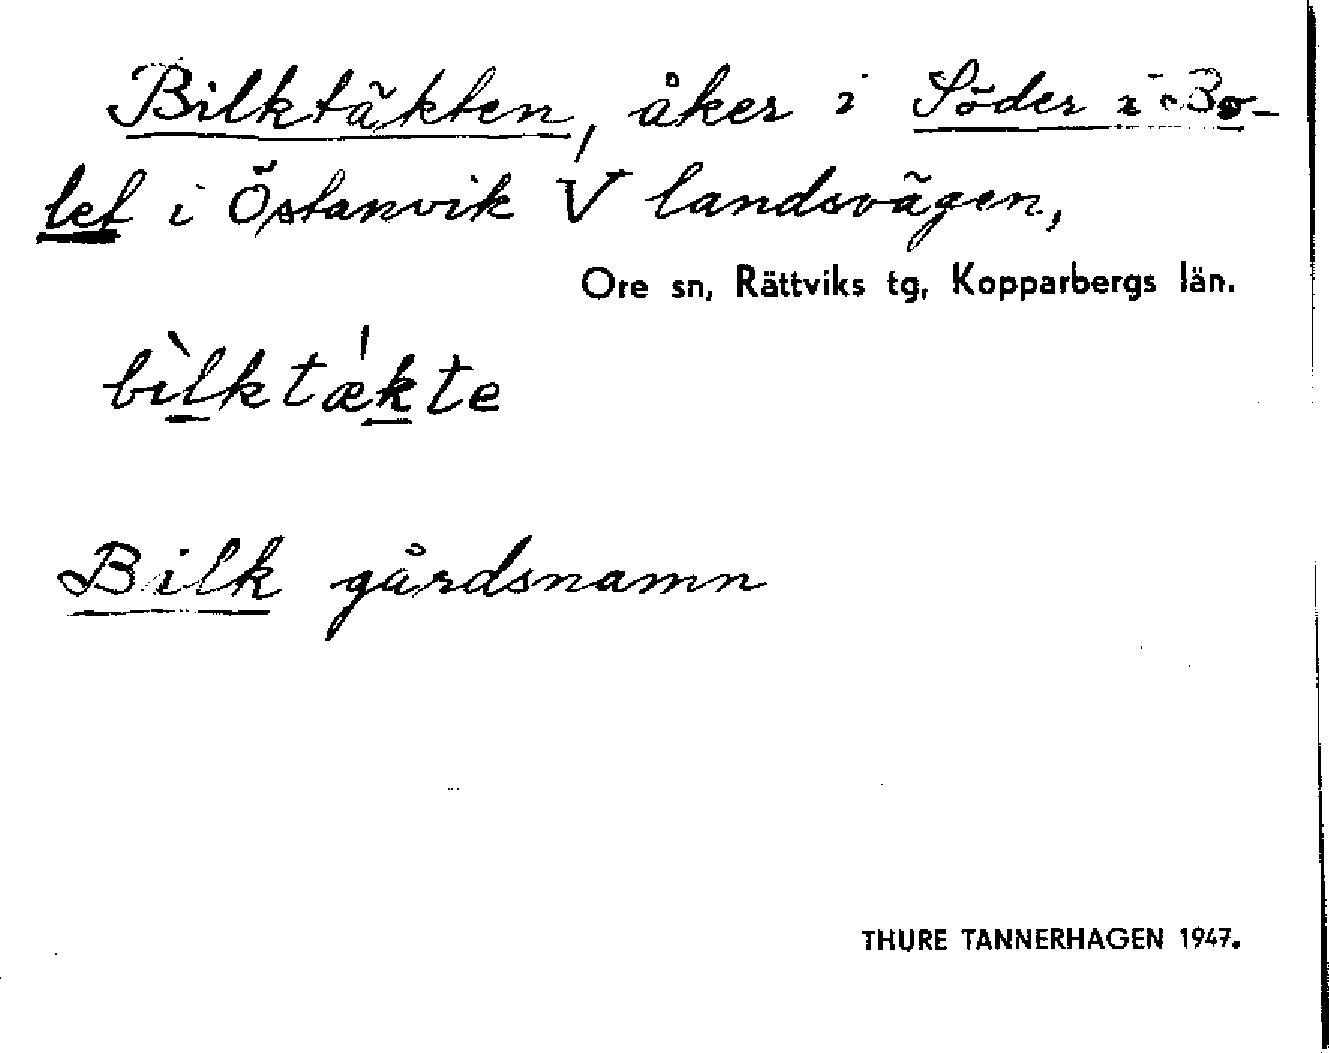 Bilktäkten, åker i Söder i Bo-
let i Östanvik V landsvägen,
Ore sn, Rättviks tg, Kopparbergs län.
bìlktæ̍kte
Bilk gårdsnamn
THURE TANNERHAGEN 1947.